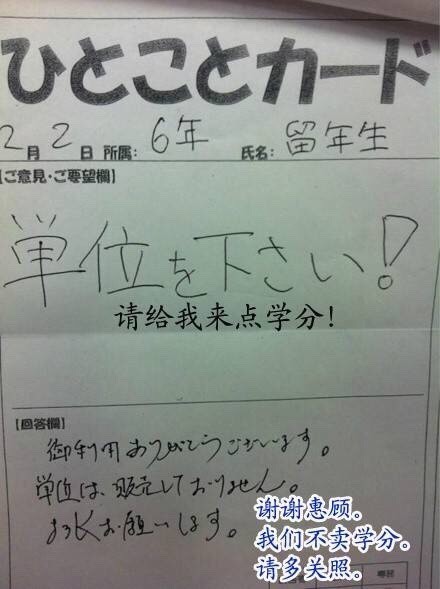 ひとことカード
2月2日 所属: 6年 氏名: 留年生
【ご意見・ご要望欄】
単位を下さい!
请给我来点学分!
【回答欄】
御利用ありがとうございます。
単位は、販売しておりません。
よろしくお願いします。
谢谢惠顾。
我们不卖学分。
请多关照。